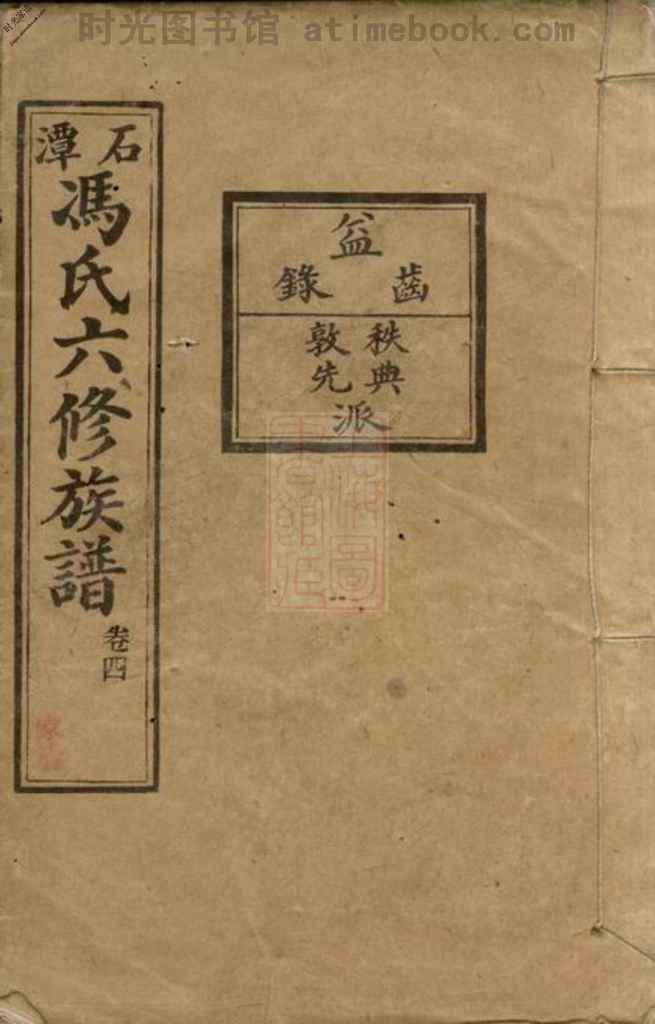 时光图书馆 atimebook.com
石潭
馮氏六修族譜
卷四
益
齒錄
秩典
敦先
派